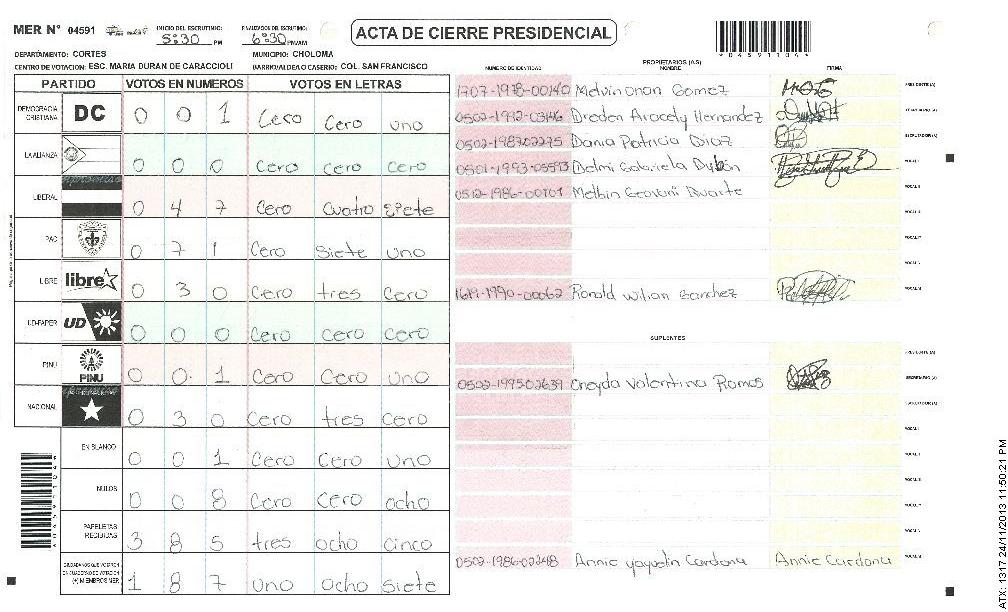 MER N° 04591
INICIO DEL ESCRUTINIO: 5:30 PM
FINALIZACION DEL ESCRUTINIO: 6:30 PM/AM
ACTA DE CIERRE PRESIDENCIAL
DEPARTAMENTO: CORTES
MUNICIPIO: CHOLOMA
CENTRO DE VOTACION: ESC. MARIA DURAN DE CARACCIOLI
BARRIO/ALDEA O CASERIO: COL. SAN FRANCISCO
PARTIDO VOTOS EN NUMEROS VOTOS EN LETRAS
DEMOCRACIA CRISTIANA DC 0 0 1 Cero Cero uno
LA ALIANZA 0 0 0 Cero Cero Cero
LIBERAL 0 4 7 Cero Cuatro siete
PAC 0 7 1 Cero Siete uno
LIBRE libre 0 3 0 Cero tres Cero
UD-FAPER UD 0 0 0 Cero Cero Cero
PINU PINU 0 0 1 Cero Cero uno
NACIONAL 0 3 0 Cero tres Cero
EN BLANCO 0 0 1 Cero Cero uno
NULOS 0 0 8 Cero Cero ocho
PAPELETAS RECIBIDAS 3 8 5 tres ocho cinco
CIUDADANOS QUE VOTARON EN CUADERNO DE VOTACION (+) MIEMBROS MER 1 8 7 uno ocho siete
PROPIETARIOS (AS)
NUMERO DE IDENTIDAD NOMBRE FIRMA
1707-1978-00140 Melvin onan Gomez PRESIDENTE (A)
0502-1992-03146 Dreden Aracely Hernandez SECRETARIO (A)
0502-198702275 Dania Patricia Diaz ESCRUTADOR (A)
0501-1993-05593 Delmi Gabriela VOCAL I
0502-1986-00101 Melbin Geovani Duarte VOCAL II
1619-1990-00062 Ronald wilian Sanchez
SUPLENTES
PRESIDENTE (A)
0502-199502639 Cneyda Valentina Ramos SECRETARIO (A)
ESCRUTADOR (A)
VOCAL I
0502-1986-02248 Annie yaquelin Cardona Annie Cardona
0459110 44
ATX: 1317 24/11/2013 11:50:21 PM